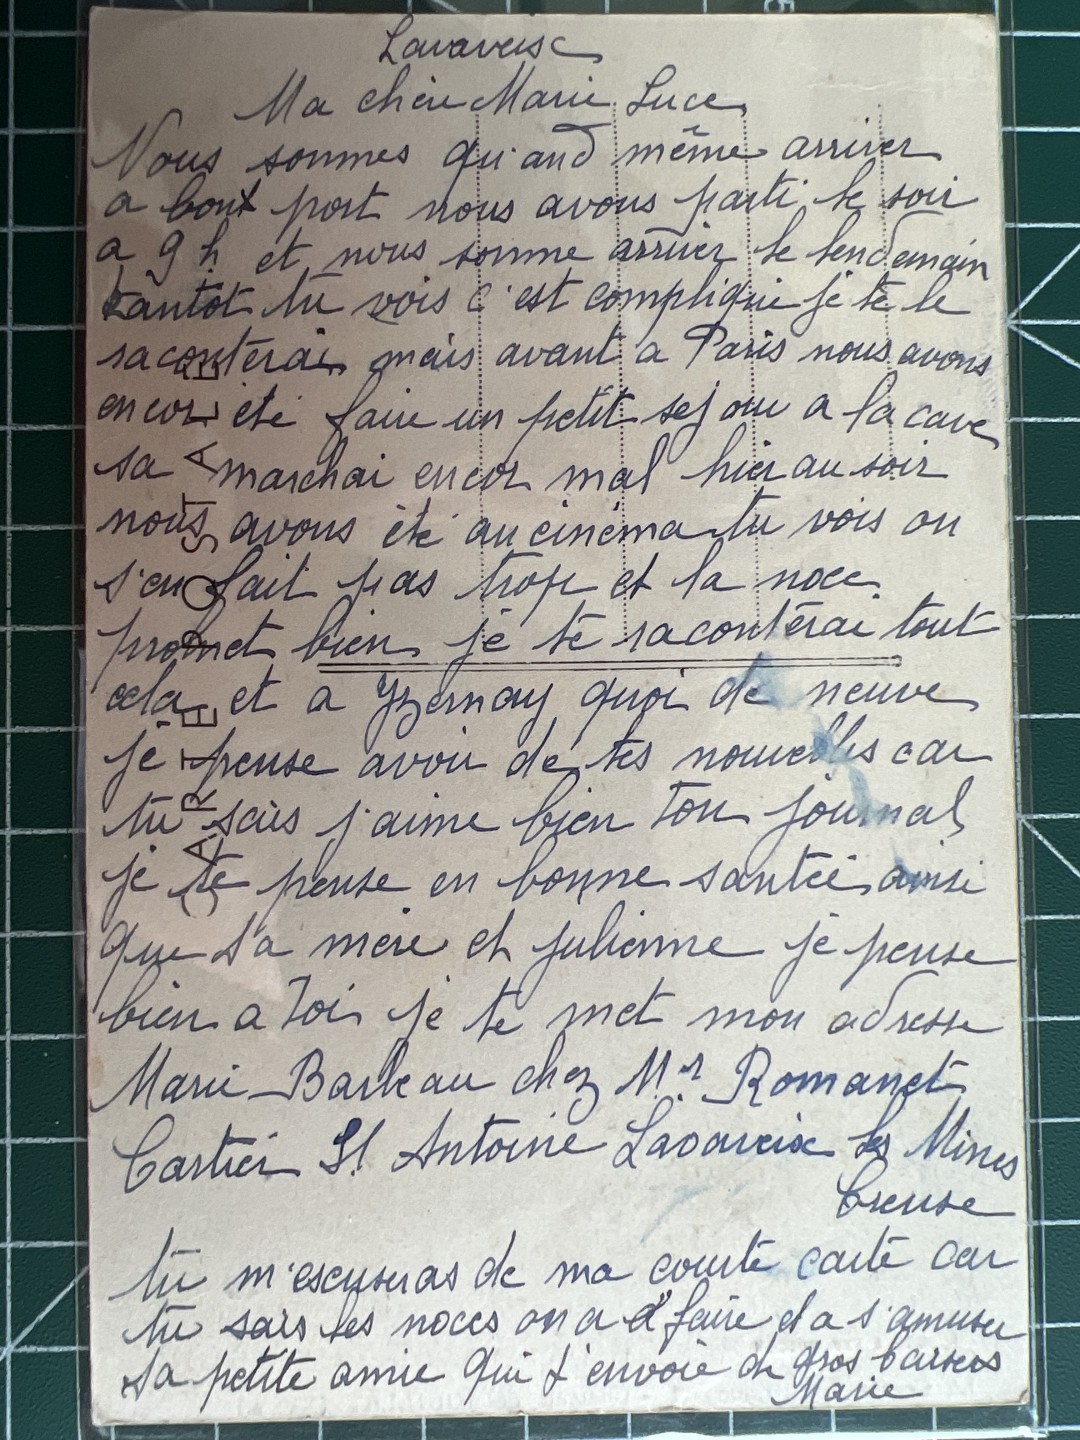 Lavaveisc
Ma chère Marie Luce
Nous sommes qu'and même arriver
a bont port nous avons parti le soir
a 9 h et nous somme arriver le lendemain
tantôt tu vois c'est compliquie je te le
raconterai mais avant a Paris nous avons
encor été faire un petit sejour a la cave
sa marchai encor mal hier au soir
nous avons été au cinéma tu vois on
s'en fait pas trop et la noce
promet bien je te raconterai tout
cela et a Yzernay quoi de neuve
je pense avoir de tes nouvelles car
tu sais j'aime bien ton journal
je te pense en bonne santée ainsi
que ta mère et julienne je pense
bien a toi je te met mon adresse
Marie Barbeau chez Mr Romanet
Cartier St Antoine Lavaveix les Mines
Creuse
tu m'escuseras de ma courte carte car
tu sais les noces on a a faire et a s'amuser
ta petite amie qui t'envoie de gros baisers
Marie
CARTE POSTALE
5